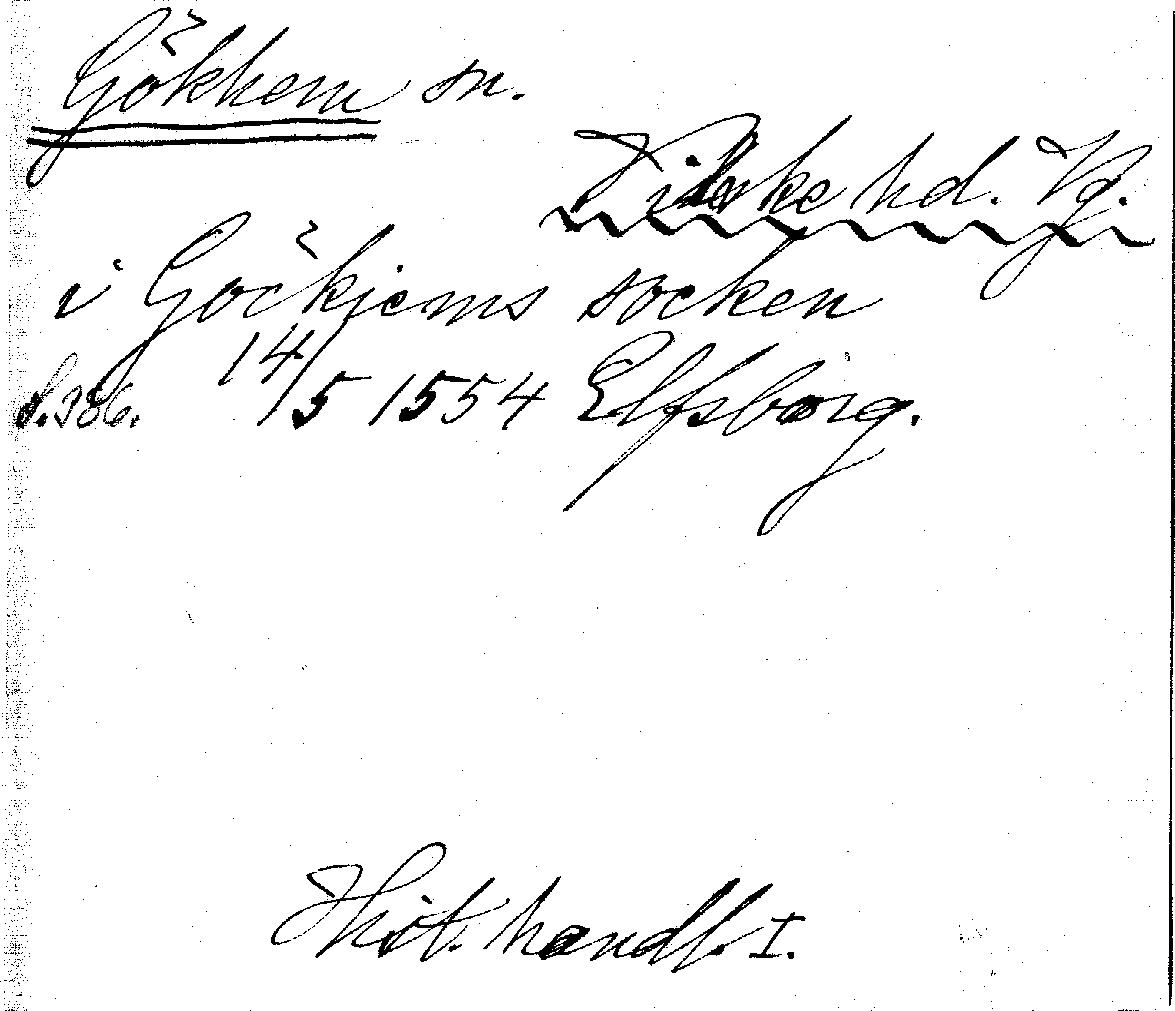 Gökhem sn.
Vilske hd. Vg.
i Göckiems socken
S. 386. 14/5 1554 Elfsborg.
Hist. handl. I.